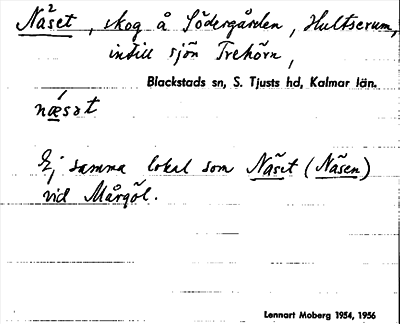 Näset, skog å Södergården, Hultserum,
intill sjön Trehörn,
Blackstads sn, S. Tjusts hd, Kalmar län.
næ´sət
Ej samma lokal som Näset (Näsen)
vid Mårgöl.
Lennart Moberg 1954, 1956